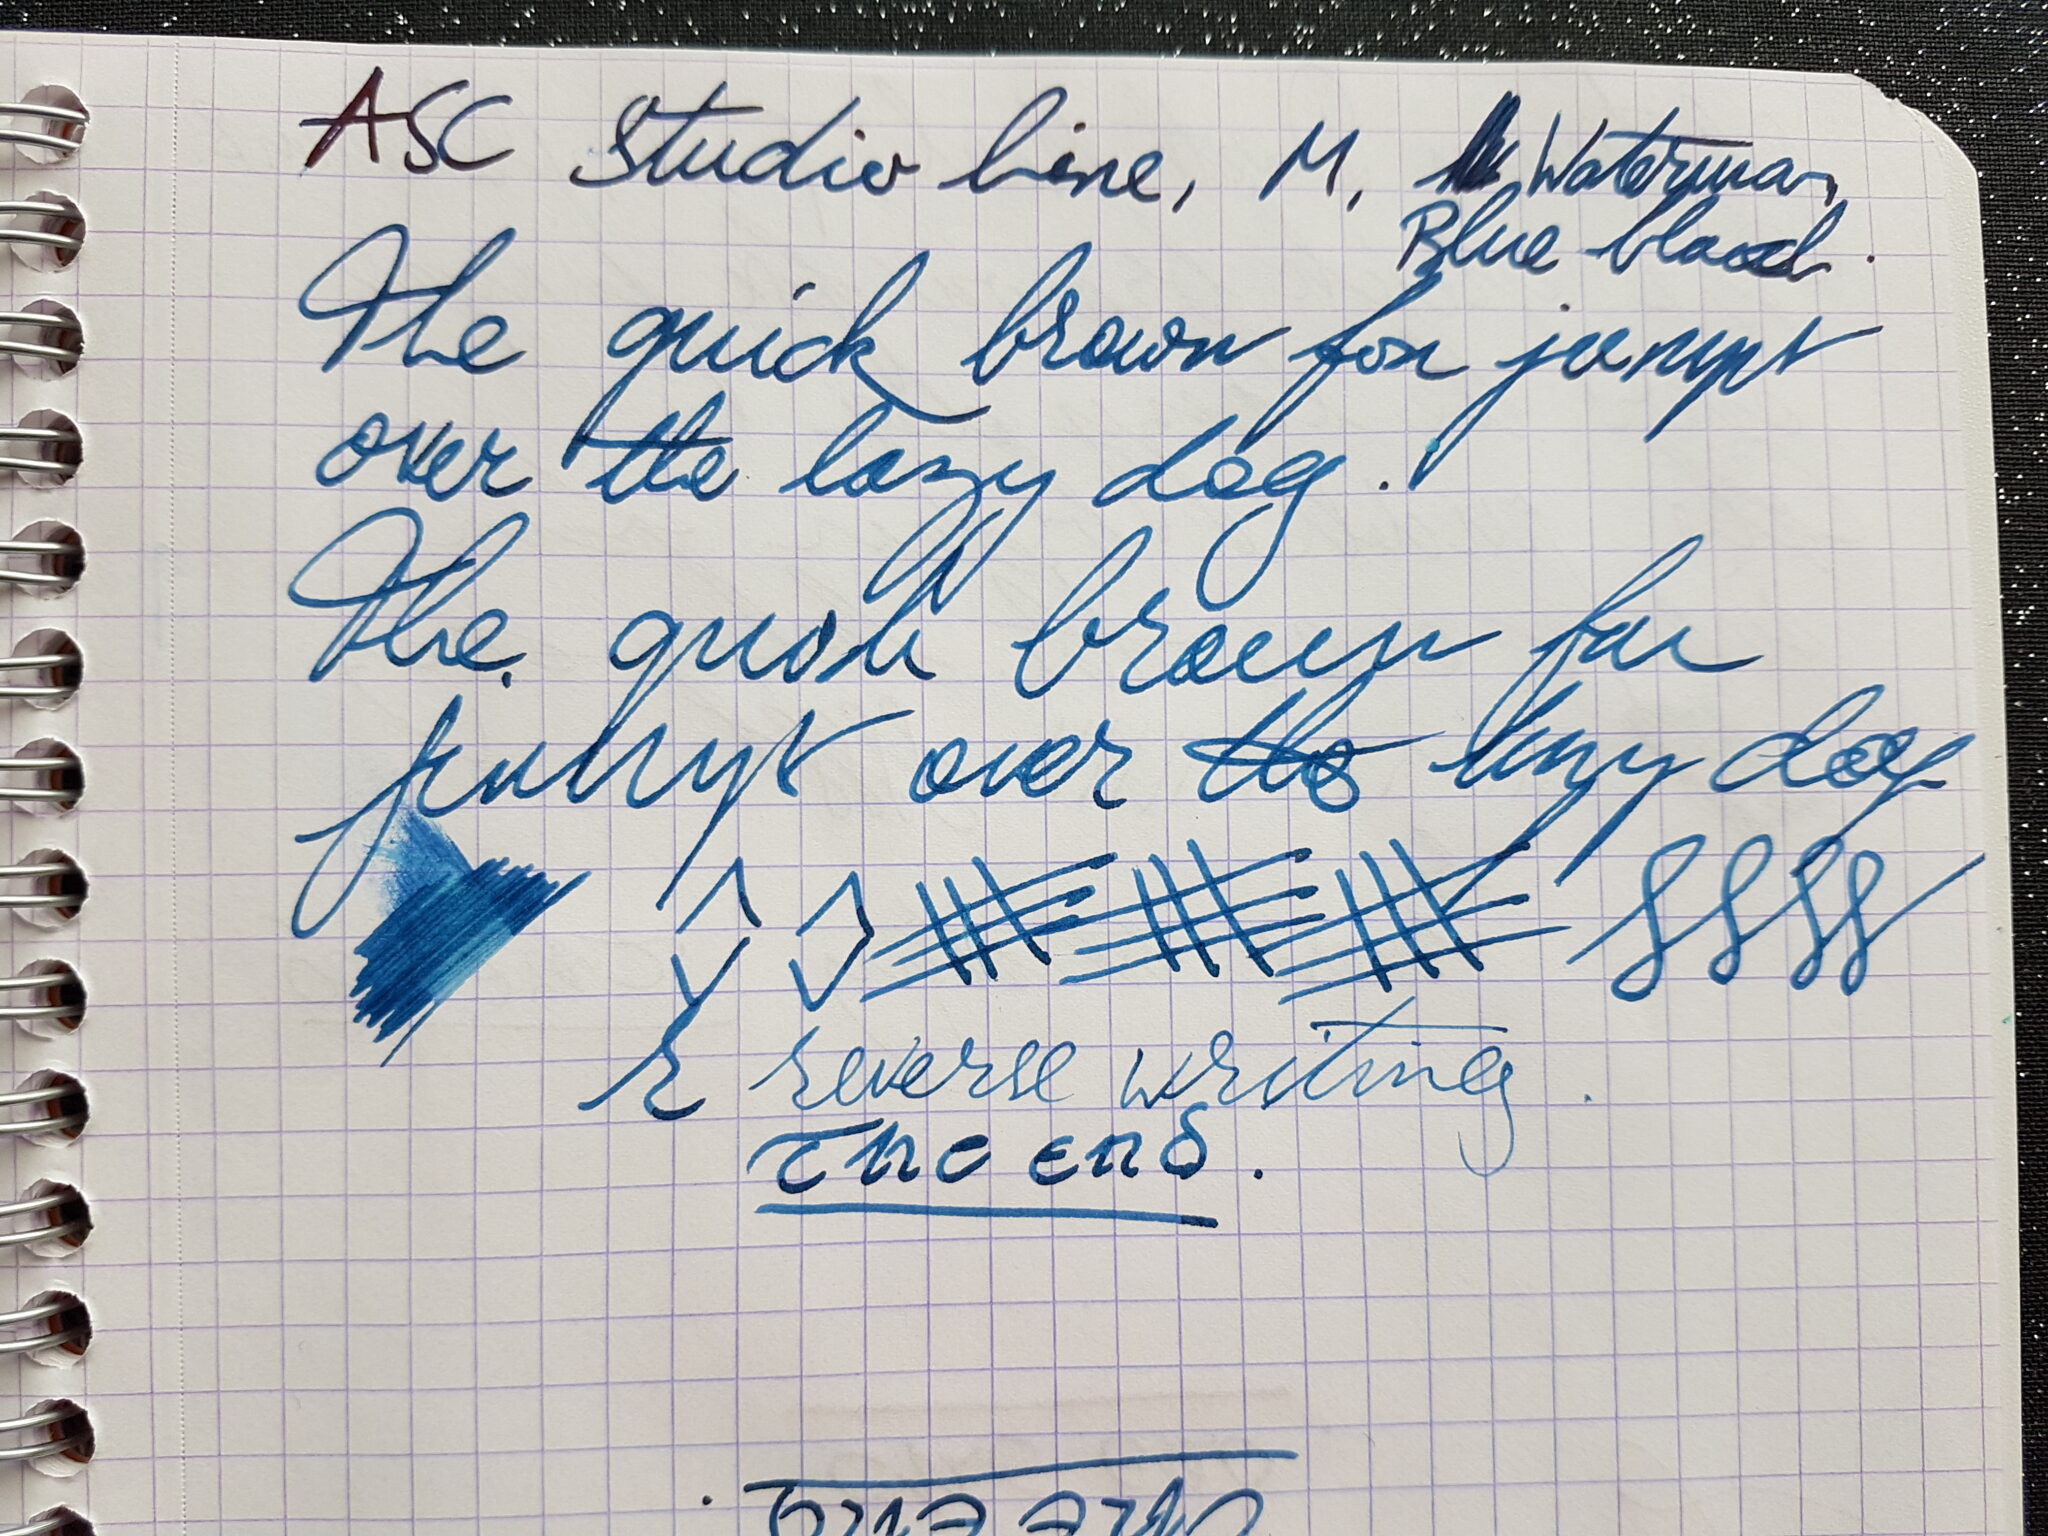 ASC Studio line, M, Waterman
Blue blood.
The quick brown fox jumpt
over the lazy dog.
The quick brown fox
jumpt over the lazy dog
r reverse writing.
The end.
The end.